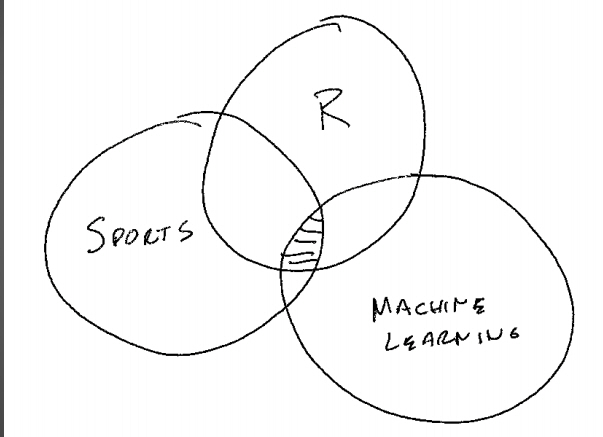 R
SPORTS
MACHINE
LEARNING